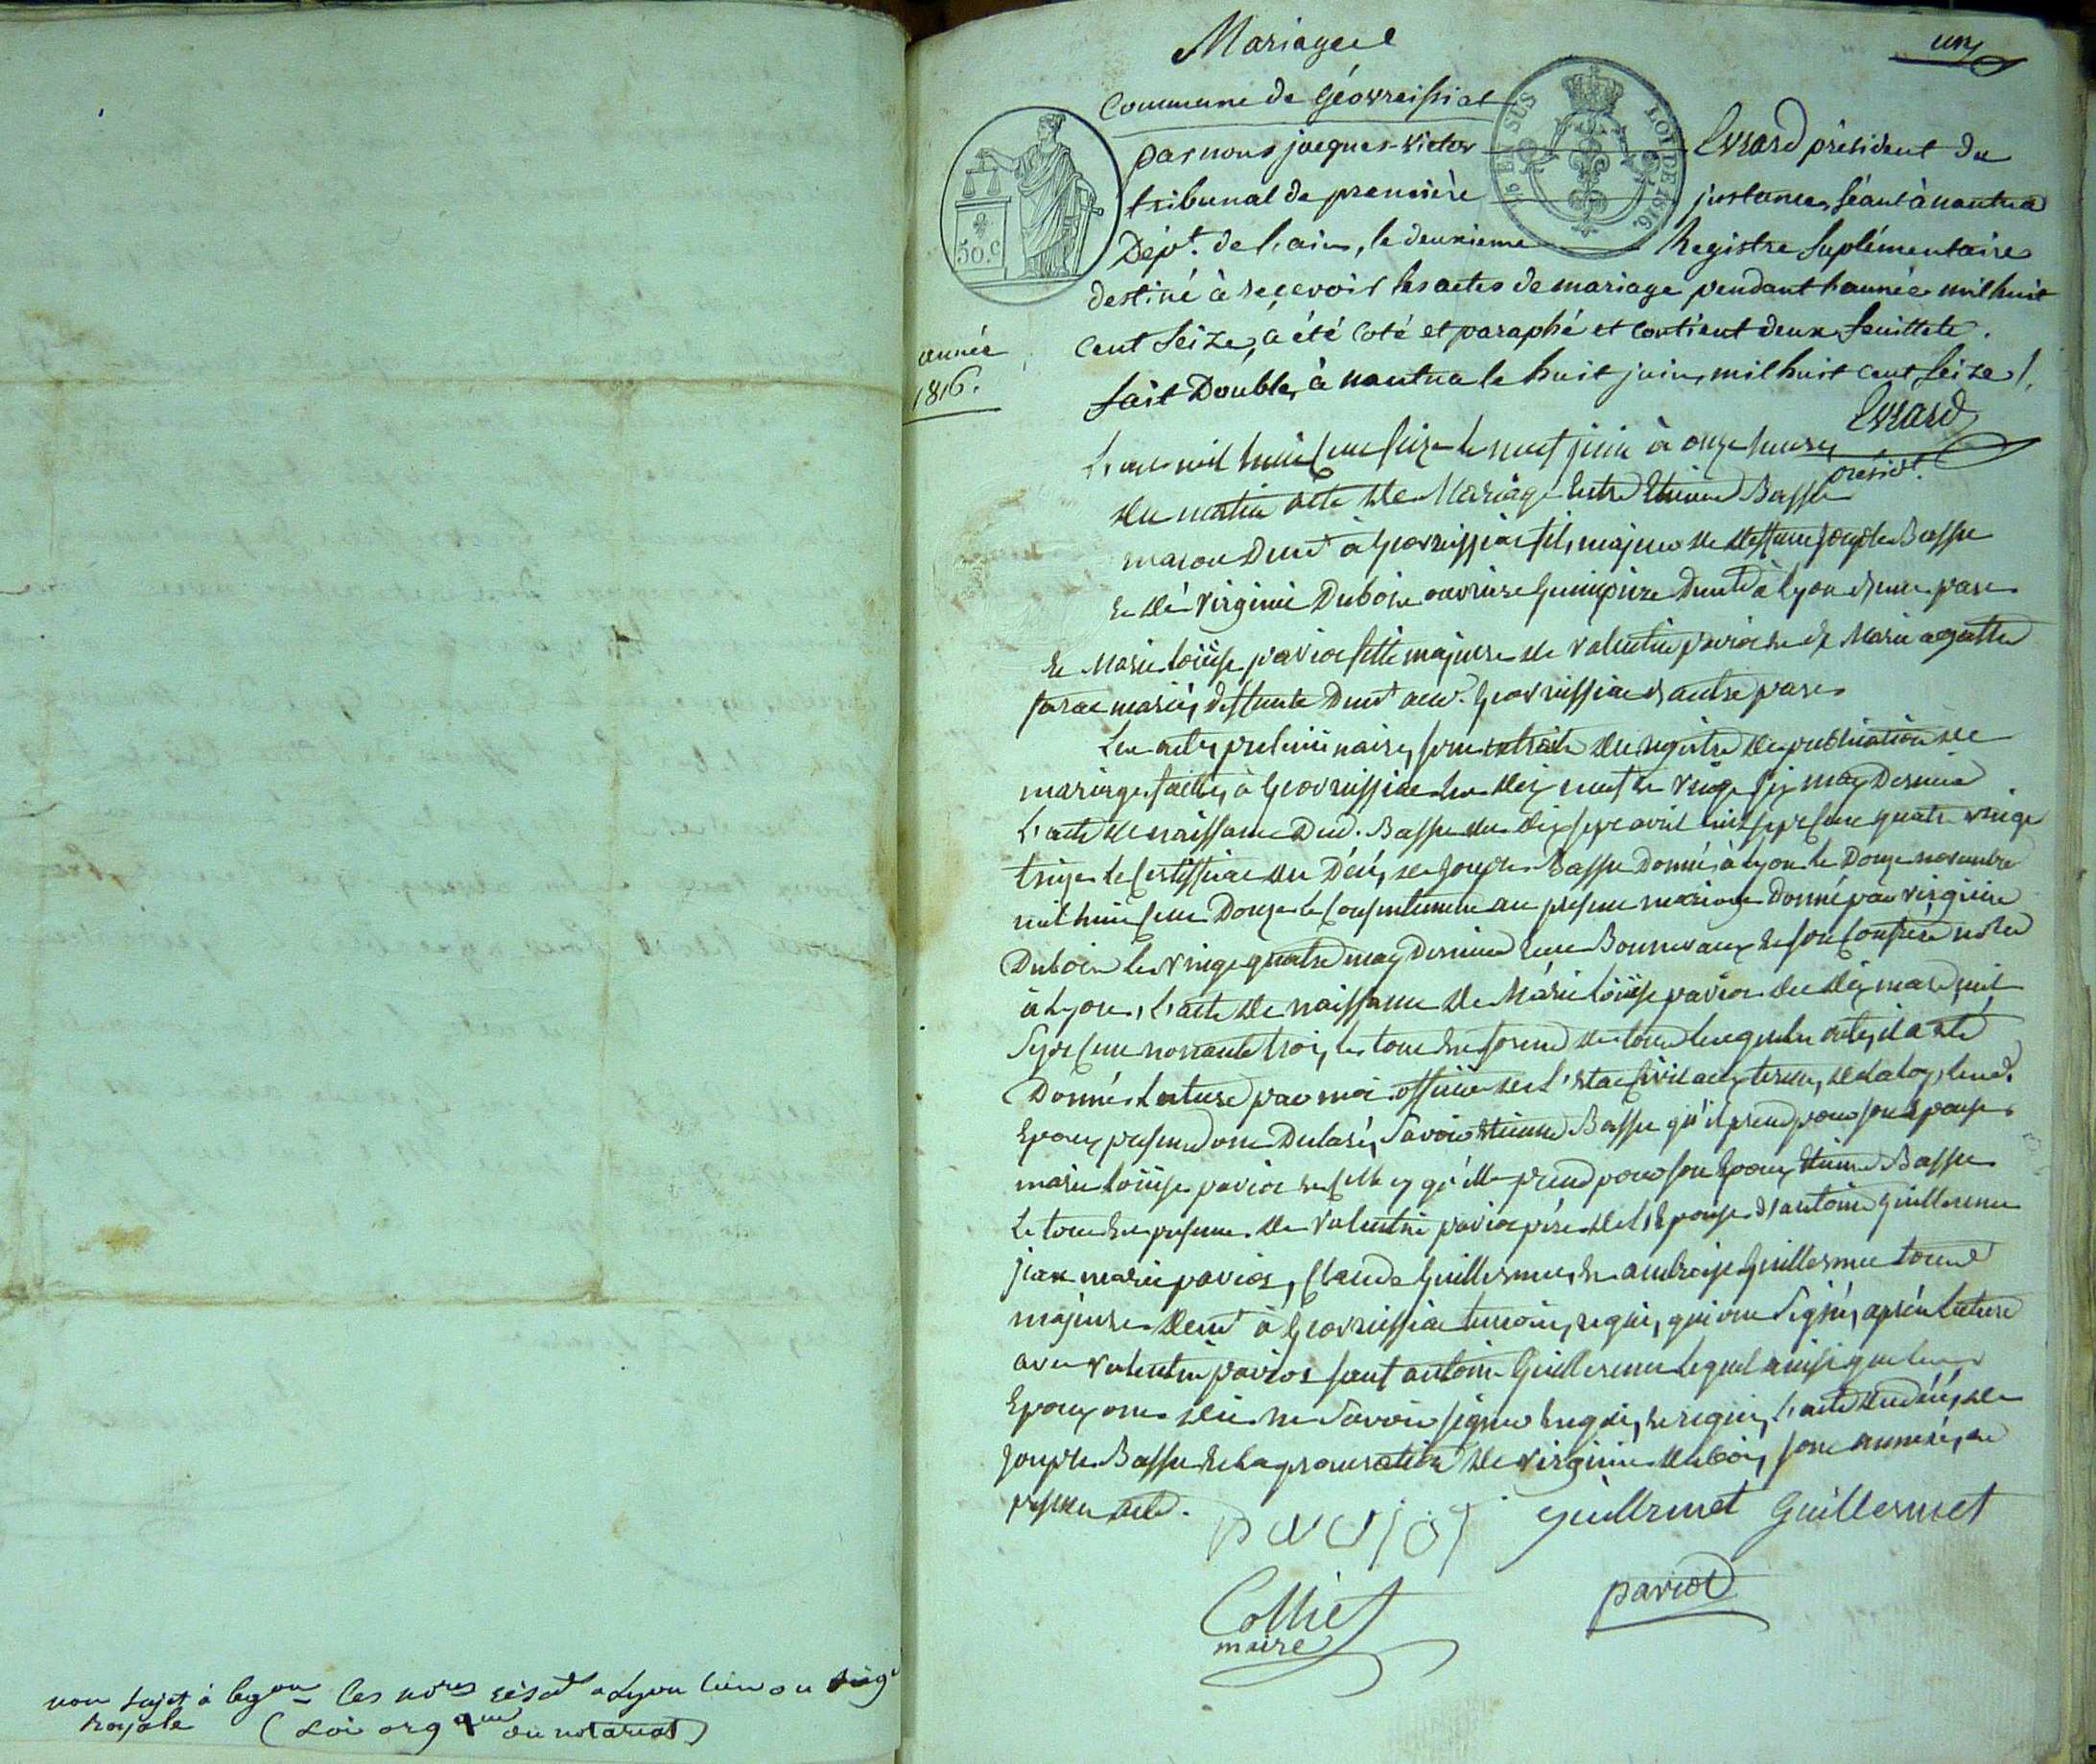 non sujet à légon = les nores résidt a Lyon lieu ou siège
royale (Loi orgque du notariat)
Mariage
un
Commune de Géovreissiat
par nous jacques-Victor Evrard président du
tribunal de première instance, séant à nantua
Dépt. de l'ain, le deuxieme Registre suplémentaire
destiné à reçevoir les actes de mariage pendant l'année mil huit
cent seize, a été coté et paraphé et contient deux feuillets.
fait Double, à nantua le huit juin, mil huit cent seize /.
année
1816.
50.c
EN SUS
LOI DE 1816
Evrard
présidt.
L'an mil huit cent seize le neuf juin à onze heures
du matin acte de Mariage Entre Etienne Basse
macon Demt à Géovreissiat fils majeur de deffunt Joseph Basse
et de Virginie Dubois ouvriere Demte à Lyon d'une part
Et Marie Loüise paviot fille majeure de valentin paviot et de Marie agathe
mariés, deffunte Demt aud. Géovreissiat d'autre part
Les actes preliminaires sont extraits du registre de publication de
mariage faittes à Géovreissiat les dix neuf et vingt six may Dernier
L'acte de naissance Dud. Basse du dix sept avril mil sept cent quatre vingt
treize le certifficat du Décés de Joseph Basse Donné à Lyon le Douze novembre
mil huit cent Douze le consentement au present mariage Donné par virginie
Dubois le vingt quatre may Dernier Bonnevaux et son confrère notres
à Lyon, L'acte de naissance de Marie Loüise paviot du dix mars mil
sept cent nonante trois, le tout En forme de tous lesquels actes il a été
Donné Lecture par moi officier de l'état civil aux termes de la loy, lesd.
Epoux presents ont Declaré, savoir Etienne Basse qu'il prend pour son Epouse
marie Loüise paviot et celle cy qu'elle prend pour son Epoux Etienne Basse
Le tout En presence de Valentin paviot père de l'Epouse d'antoine Guillermet
jean marie paviot, Claude Guillermet, et ambroise Guillermet tous
majeurs demt à Géovreissiat temoins requis, qui ont signé, après Lecture
avec valentin paviot sauf antoine Guillermet lequel ainsi que les
Epoux ont dit ne savoir signer Enquis, et requis, l'acte de décés de
Joseph Basse et la procuration de virginie dubois, sont annexés, au
present acte.
paviot Guillermet Guillermet
Colliet paviot
maire